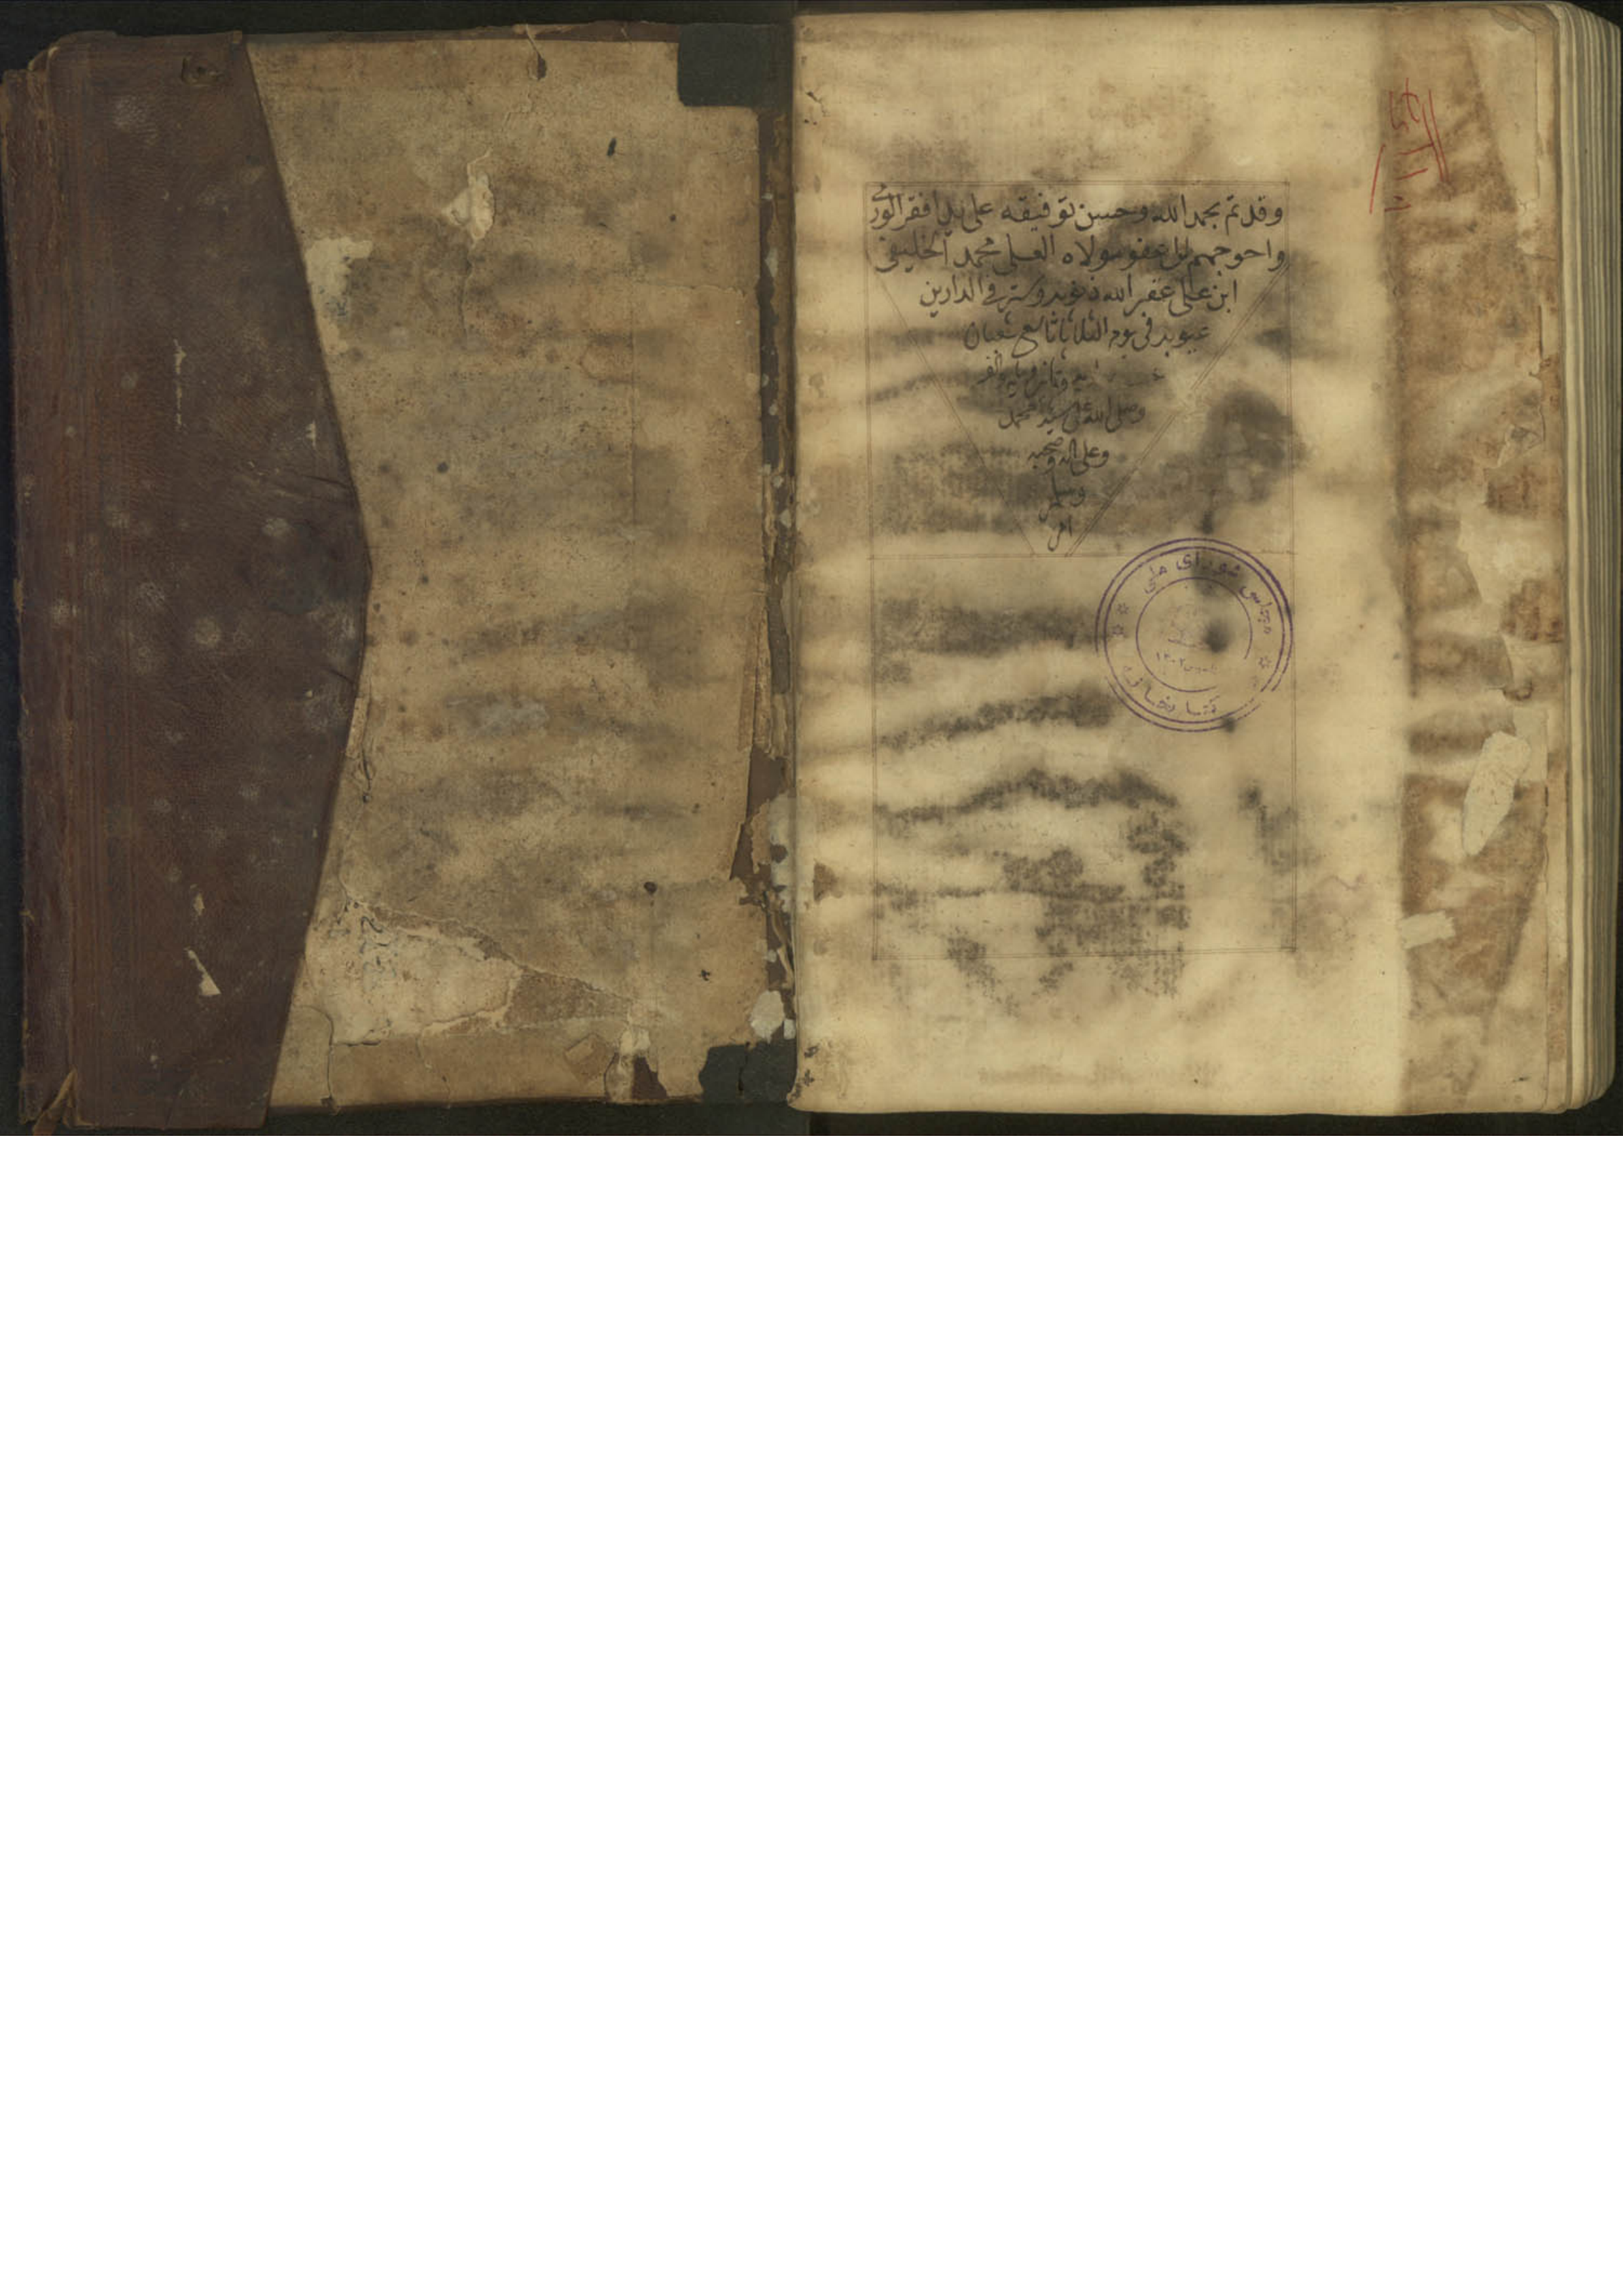 وقد تم بحمد الله وحسن توفيقه على يد افقر الورى
واحوجهم الى عفو مولاه العلى محمد الخليفى
ابن على غفر الله ذنوبه وستر فى الدارين
عيوبه فى يوم الثلاثا تاسع شعبان
وصلى الله على سيدنا محمد
وعلى اله وصحبه
وسلم
امين
مجلس شورای ملی
کتابخانه